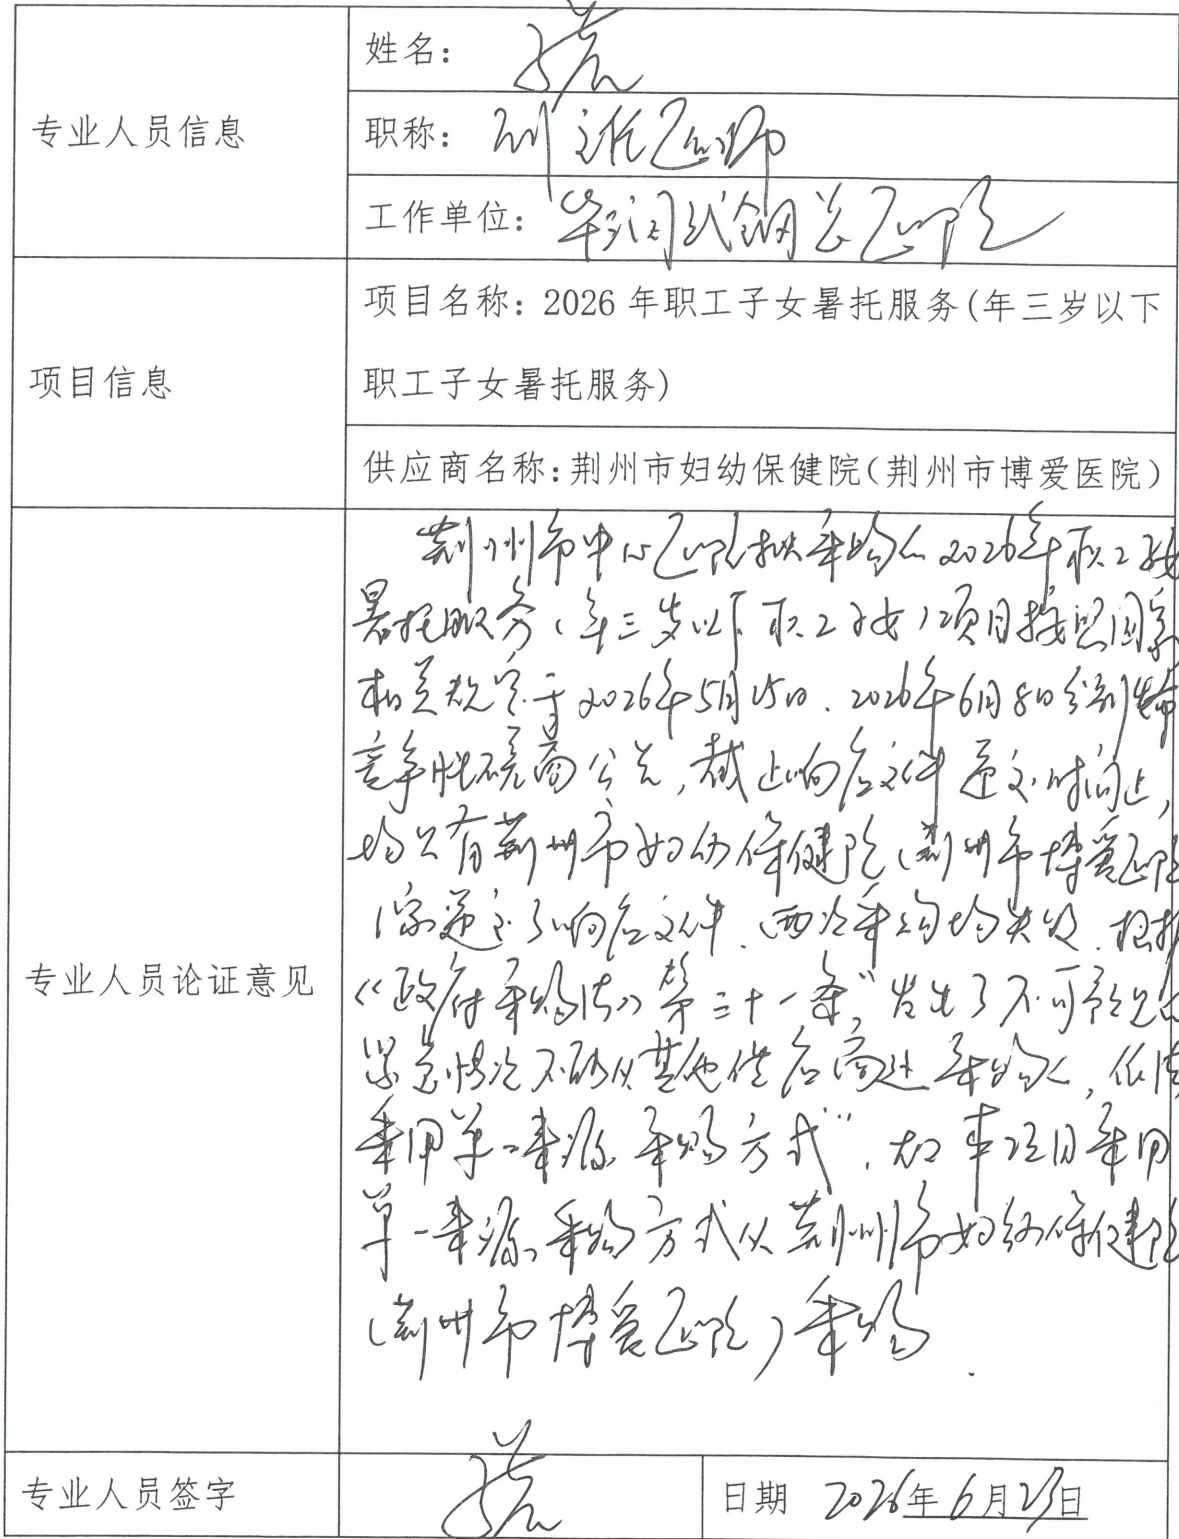 专业人员信息
姓名：
职称：副主任医师
工作单位：华润武钢总医院
项目信息
项目名称：2026 年职工子女暑托服务(年三岁以下
职工子女暑托服务)
供应商名称：荆州市妇幼保健院(荆州市博爱医院)
专业人员论证意见
荆州市中心医院拟采购的2026年职工子女
暑托服务(年三岁以下职工子女)项目按照国家
相关规定于2026年5月15日、2026年6月8日分别发布
竞争性磋商公告,截止响应文件递交时间止,
均只有荆州市妇幼保健院(荆州市博爱医院
1家递交了响应文件.两次采购均失败.根据
《政府采购法》第三十一条“发生了不可预见的
紧急情况不能从其他供应商处采购的,依法
采用单一来源采购方式”.本项目采用
单一来源采购方式从荆州市妇幼保健院
(荆州市博爱医院)采购.
专业人员签字
日期 2026年6月23日